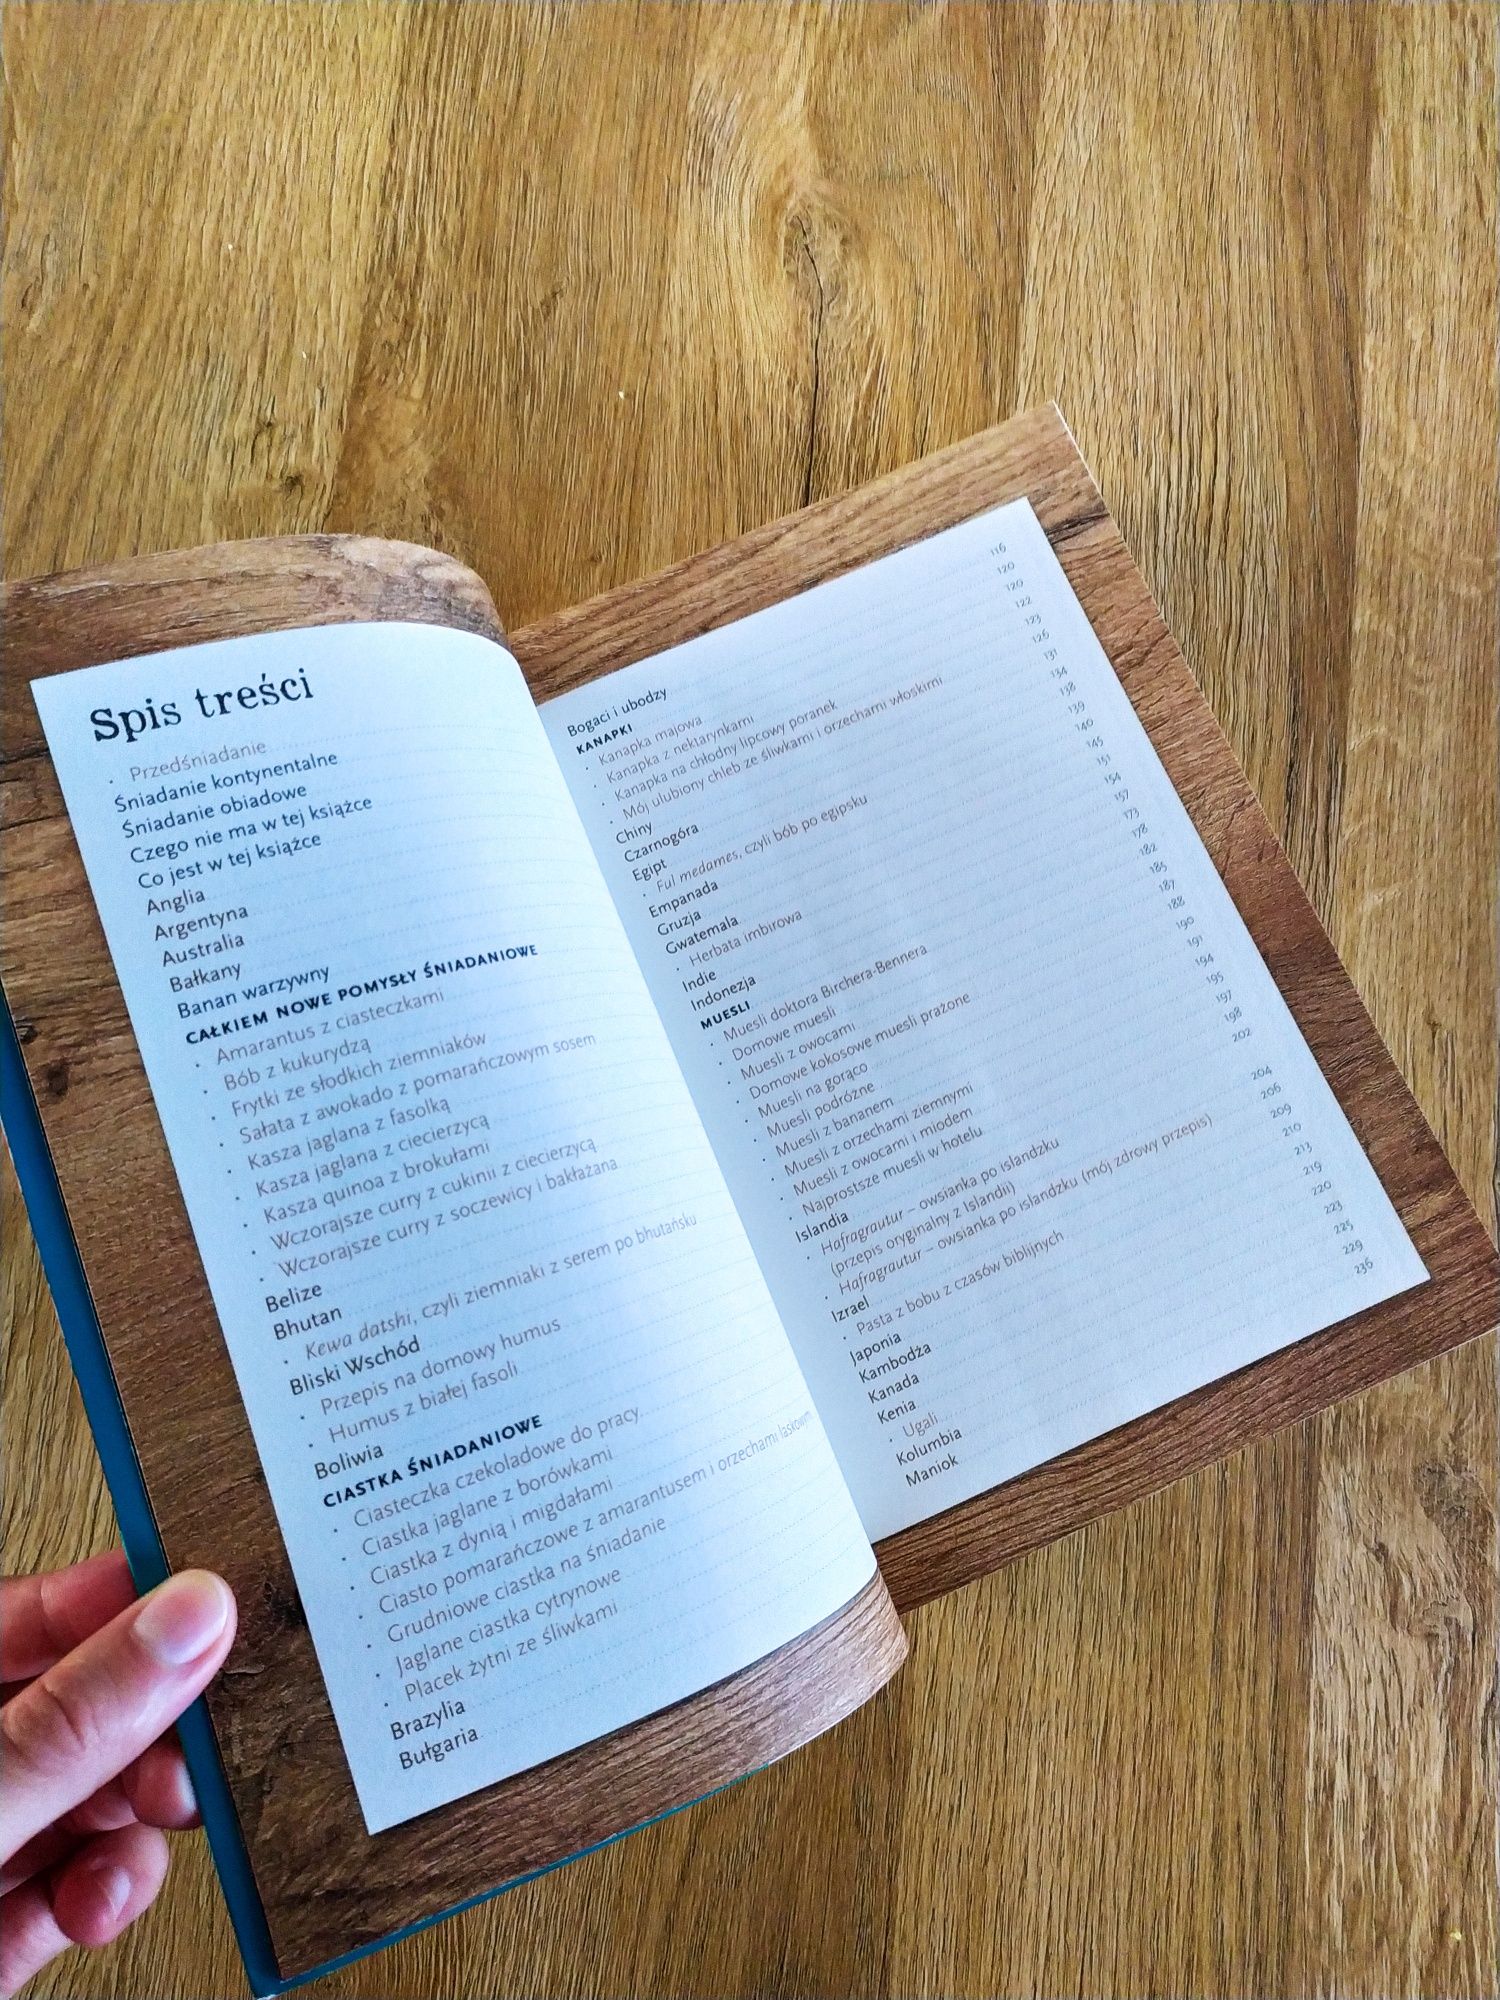 Spis treści
· Przedśniadanie
Śniadanie kontynentalne
Śniadanie obiadowe
Czego nie ma w tej książce
Co jest w tej książce
Anglia
Argentyna
Australia
Bałkany
Banan warzywny
CAŁKIEM NOWE POMYSŁY ŚNIADANIOWE
· Amarantus z ciasteczkami
· Bób z kukurydzą
· Frytki ze słodkich ziemniaków
· Sałata z awokado z pomarańczowym sosem
· Kasza jaglana z fasolką
· Kasza jaglana z ciecierzycą
· Kasza quinoa z brokułami
· Wczorajsze curry z cukinii z ciecierzycą
· Wczorajsze curry z soczewicy i bakłażana
Belize
Bhutan
· Kewa datshi, czyli ziemniaki z serem po bhutańsku
Bliski Wschód
· Przepis na domowy humus
· Humus z białej fasoli
Boliwia
CIASTKA ŚNIADANIOWE
· Ciasteczka czekoladowe do pracy
· Ciastka jaglane z borówkami
· Ciastka z dynią i migdałami
· Ciasto pomarańczowe z amarantusem i orzechami laskowym
· Grudniowe ciastka na śniadanie
· Jaglane ciastka cytrynowe
· Placek żytni ze śliwkami
Brazylia
Bułgaria
Bogaci i ubodzy 116
KANAPKI 120
· Kanapka majowa 120
· Kanapka z nektarynkami 122
· Kanapka na chłodny lipcowy poranek 123
· Mój ulubiony chleb ze śliwkami i orzechami włoskimi 126
Chiny 131
Czarnogóra 134
Egipt 138
· Ful medames, czyli bób po egipsku 139
Empanada 140
Gruzja 145
Gwatemala 151
· Herbata imbirowa 154
Indie 157
Indonezja 173
MUESLI 178
· Muesli doktora Birchera-Bennera 182
· Domowe muesli 185
· Muesli z owocami 187
· Domowe kokosowe muesli prażone 188
· Muesli na gorąco 190
· Muesli podróżne 191
· Muesli z bananem 194
· Muesli z orzechami ziemnymi 195
· Muesli z owocami i miodem 197
· Najprostsze muesli w hotelu 198
Islandia 202
· Hafragrautur – owsianka po islandzku
(przepis oryginalny z Islandii) 204
· Hafragrautur – owsianka po islandzku (mój zdrowy przepis) 206
Izrael 209
· Pasta z bobu z czasów biblijnych 210
Japonia 213
Kambodża 219
Kanada 220
Kenia 223
· Ugali 225
Kolumbia 229
Maniok 236